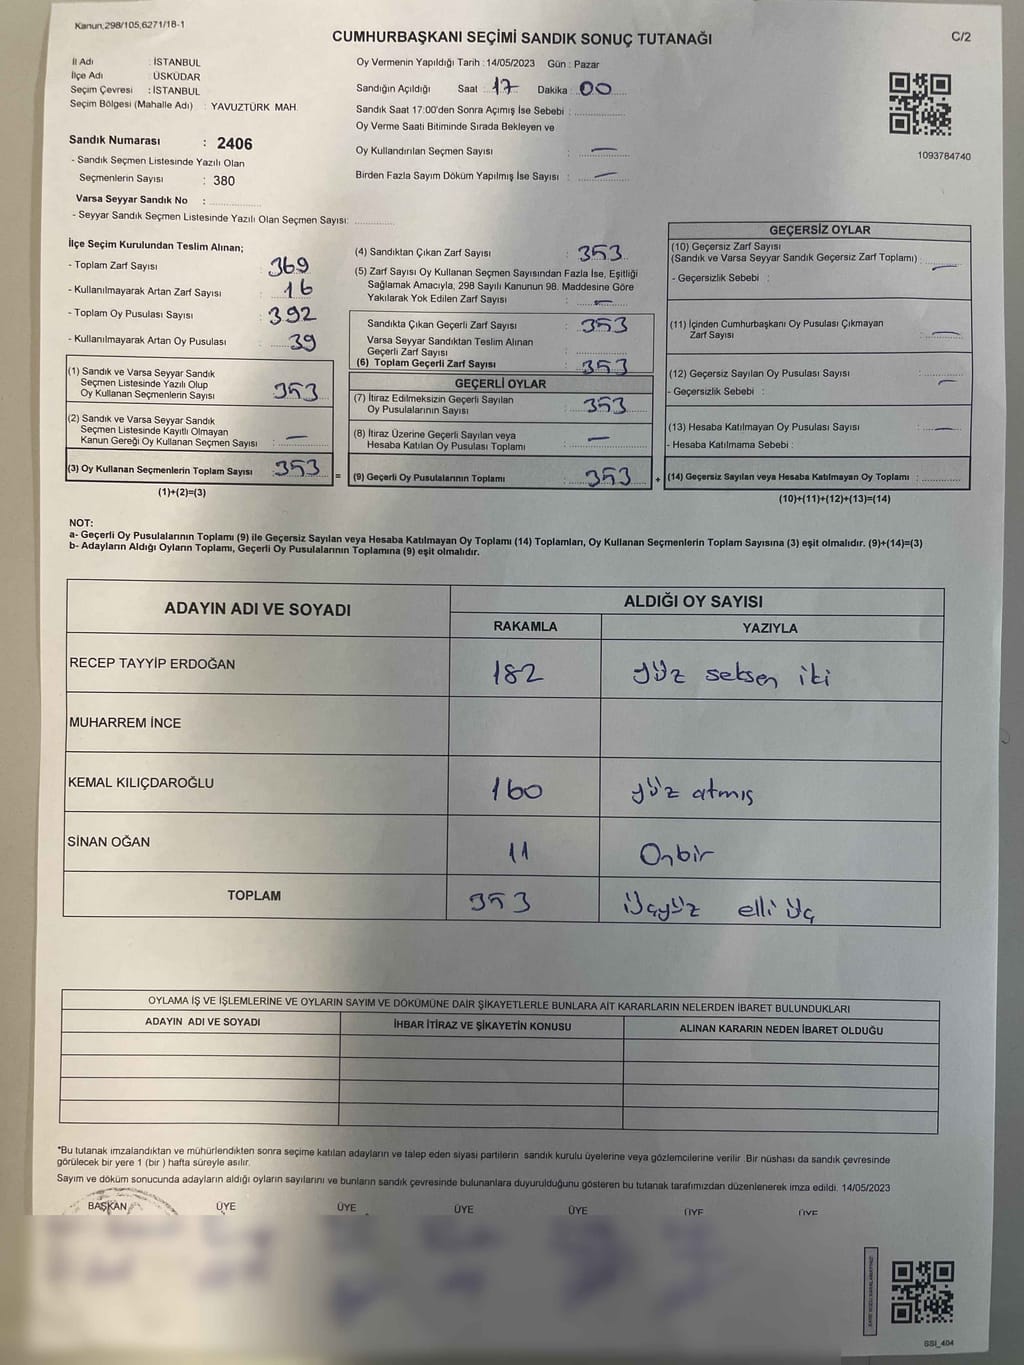 Kanun,298/105,6271/18-1
CUMHURBAŞKANI SEÇİMİ SANDIK SONUÇ TUTANAĞI
C/2
İl Adı : İSTANBUL
İlçe Adı : ÜSKÜDAR
Seçim Çevresi : İSTANBUL
Seçim Bölgesi (Mahalle Adı) : YAVUZTÜRK MAH.
Sandık Numarası : 2406
- Sandık Seçmen Listesinde Yazılı Olan
Seçmenlerin Sayısı : 380
Varsa Seyyar Sandık No :
- Seyyar Sandık Seçmen Listesinde Yazılı Olan Seçmen Sayısı:
Oy Vermenin Yapıldığı Tarih : 14/05/2023 Gün : Pazar
Sandığın Açıldığı Saat : 17 Dakika : 00
Sandık Saat 17:00'den Sonra Açımış İse Sebebi :
Oy Verme Saati Bitiminde Sırada Bekleyen ve
Oy Kullandırılan Seçmen Sayısı : —
Birden Fazla Sayım Döküm Yapılmış İse Sayısı : —
1093784740
İlçe Seçim Kurulundan Teslim Alınan;
- Toplam Zarf Sayısı : 369
- Kullanılmayarak Artan Zarf Sayısı : 16
- Toplam Oy Pusulası Sayısı : 392
- Kullanılmayarak Artan Oy Pusulası : 39
(1) Sandık ve Varsa Seyyar Sandık
Seçmen Listesinde Yazılı Olup
Oy Kullanan Seçmenlerin Sayısı : 353
(2) Sandık ve Varsa Seyyar Sandık
Seçmen Listesinde Kayıtlı Olmayan
Kanun Gereği Oy Kullanan Seçmen Sayısı : —
(3) Oy Kullanan Seçmenlerin Toplam Sayısı : 353
(1)+(2)=(3)
=
(4) Sandıktan Çıkan Zarf Sayısı : 353
(5) Zarf Sayısı Oy Kullanan Seçmen Sayısından Fazla İse, Eşitliği
Sağlamak Amacıyla, 298 Sayılı Kanunun 98. Maddesine Göre
Yakılarak Yok Edilen Zarf Sayısı : —
Sandıkta Çıkan Geçerli Zarf Sayısı : 353
Varsa Seyyar Sandıktan Teslim Alınan
Geçerli Zarf Sayısı :
(6) Toplam Geçerli Zarf Sayısı : 353
GEÇERLİ OYLAR
(7) İtiraz Edilmeksizin Geçerli Sayılan
Oy Pusulalarının Sayısı : 353
(8) İtiraz Üzerine Geçerli Sayılan veya
Hesaba Katılan Oy Pusulası Toplamı : —
(9) Geçerli Oy Pusulalarının Toplamı : 353
+
GEÇERSİZ OYLAR
(10) Geçersiz Zarf Sayısı
(Sandık ve Varsa Seyyar Sandık Geçersiz Zarf Toplamı) : —
- Geçersizlik Sebebi :
(11) İçinden Cumhurbaşkanı Oy Pusulası Çıkmayan
Zarf Sayısı : —
(12) Geçersiz Sayılan Oy Pusulası Sayısı : —
- Geçersizlik Sebebi :
(13) Hesaba Katılmayan Oy Pusulası Sayısı : —
- Hesaba Katılmama Sebebi :
(14) Geçersiz Sayılan veya Hesaba Katılmayan Oy Toplamı :
(10)+(11)+(12)+(13)=(14)
NOT:
a- Geçerli Oy Pusulalarının Toplamı (9) ile Geçersiz Sayılan veya Hesaba Katılmayan Oy Toplamı (14) Toplamları, Oy Kullanan Seçmenlerin Toplam Sayısına (3) eşit olmalıdır. (9)+(14)=(3)
b- Adayların Aldığı Oyların Toplamı, Geçerli Oy Pusulalarının Toplamına (9) eşit olmalıdır.
ADAYIN ADI VE SOYADI ALDIĞI OY SAYISI
RAKAMLA YAZIYLA
RECEP TAYYİP ERDOĞAN 182 Yüz seksen iki
MUHARREM İNCE
KEMAL KILIÇDAROĞLU 160 Yüz atmış
SİNAN OĞAN 11 Onbir
TOPLAM 353 Üçyüz elli üç
OYLAMA İŞ VE İŞLEMLERİNE VE OYLARIN SAYIM VE DÖKÜMÜNE DAİR ŞİKAYETLERLE BUNLARA AİT KARARLARIN NELERDEN İBARET BULUNDUKLARI
ADAYIN ADI VE SOYADI İHBAR İTİRAZ VE ŞİKAYETİN KONUSU ALINAN KARARIN NEDEN İBARET OLDUĞU
*Bu tutanak imzalandıktan ve mühürlendikten sonra seçime katılan adayların ve talep eden siyasi partilerin sandık kurulu üyelerine veya gözlemcilerine verilir. Bir nüshası da sandık çevresinde
görülecek bir yere 1 (bir ) hafta süreyle asılır.
Sayım ve döküm sonucunda adayların aldığı oyların sayılarını ve bunların sandık çevresinde bulunanlara duyurulduğunu gösteren bu tutanak tarafımızdan düzenlenerek imza edildi. 14/05/2023
BAŞKAN ÜYE ÜYE ÜYE ÜYE ÜYE ÜYE
SSI_404